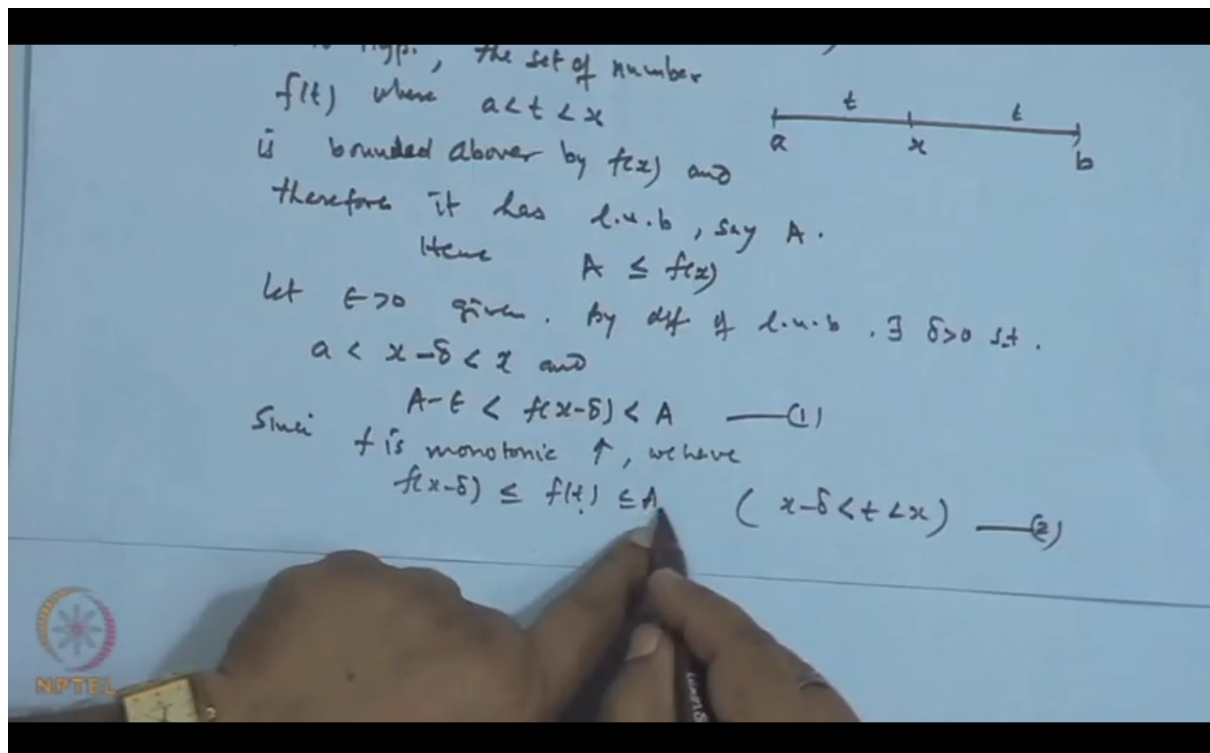 Hyp., the set of number
f(t) where a<t<x
is bounded above by f(x) and
therefore it has l.u.b, say A.
Hence A ≤ f(x)
t t
a x b
Let ϵ>0 given. By def of l.u.b, ∃ δ>0 s.t.
a < x-δ < x and
A-ϵ < f(x-δ) < A —(1)
Since f is monotonic ↑, we have
f(x-δ) ≤ f(t) ≤ A (x-δ<t<x) —(2)
NPTEL